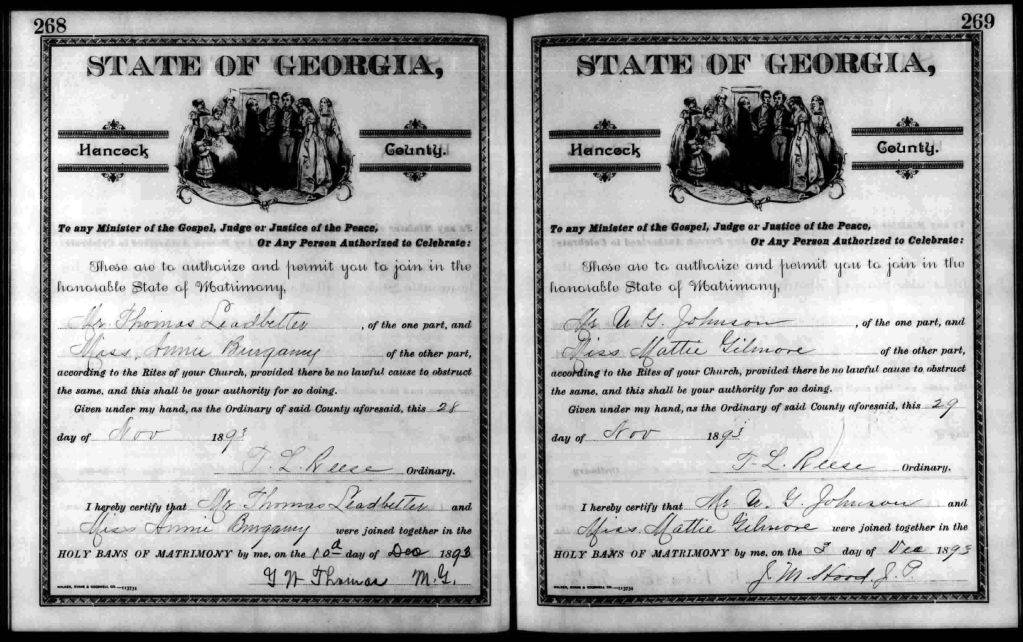 268
STATE OF GEORGIA,
Hancock County.
To any Minister of the Gospel, Judge or Justice of the Peace,
Or Any Person Authorized to Celebrate:
These are to authorize and permit you to join in the
honorable State of Matrimony,
Mr Thomas Leadbetter , of the one part, and
Miss Annie Burgamy of the other part,
according to the Rites of your Church, provided there be no lawful cause to obstruct
the same, and this shall be your authority for so doing.
Given under my hand, as the Ordinary of said County aforesaid, this 28
day of Nov 1893
T. L. Reese Ordinary.
I hereby certify that Mr Thomas Leadbetter and
Miss Annie Burgamy were joined together in the
HOLY BANS OF MATRIMONY by me, on the 10th day of Dec 1893
G W Thomas M.G.
269
STATE OF GEORGIA,
Hancock County.
To any Minister of the Gospel, Judge or Justice of the Peace,
Or Any Person Authorized to Celebrate:
These are to authorize and permit you to join in the
honorable State of Matrimony,
Mr U. G. Johnson , of the one part, and
Miss Mattie Gilmore of the other part,
according to the Rites of your Church, provided there be no lawful cause to obstruct
the same, and this shall be your authority for so doing.
Given under my hand, as the Ordinary of said County aforesaid, this 29
day of Nov 1893
T. L. Reese Ordinary.
I hereby certify that Mr U. G. Johnson and
Miss. Mattie Gilmore were joined together in the
HOLY BANS OF MATRIMONY by me, on the 3 day of Dec 1893
J. M. Hood J. P.